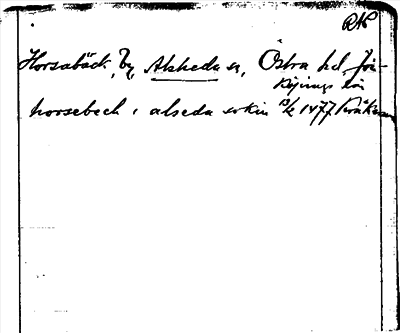 RAP
Horsabäck, by, Alsheda sn, Östra hd, Jön-
köpings län
horsebech i alseda sokn 13/2 1477